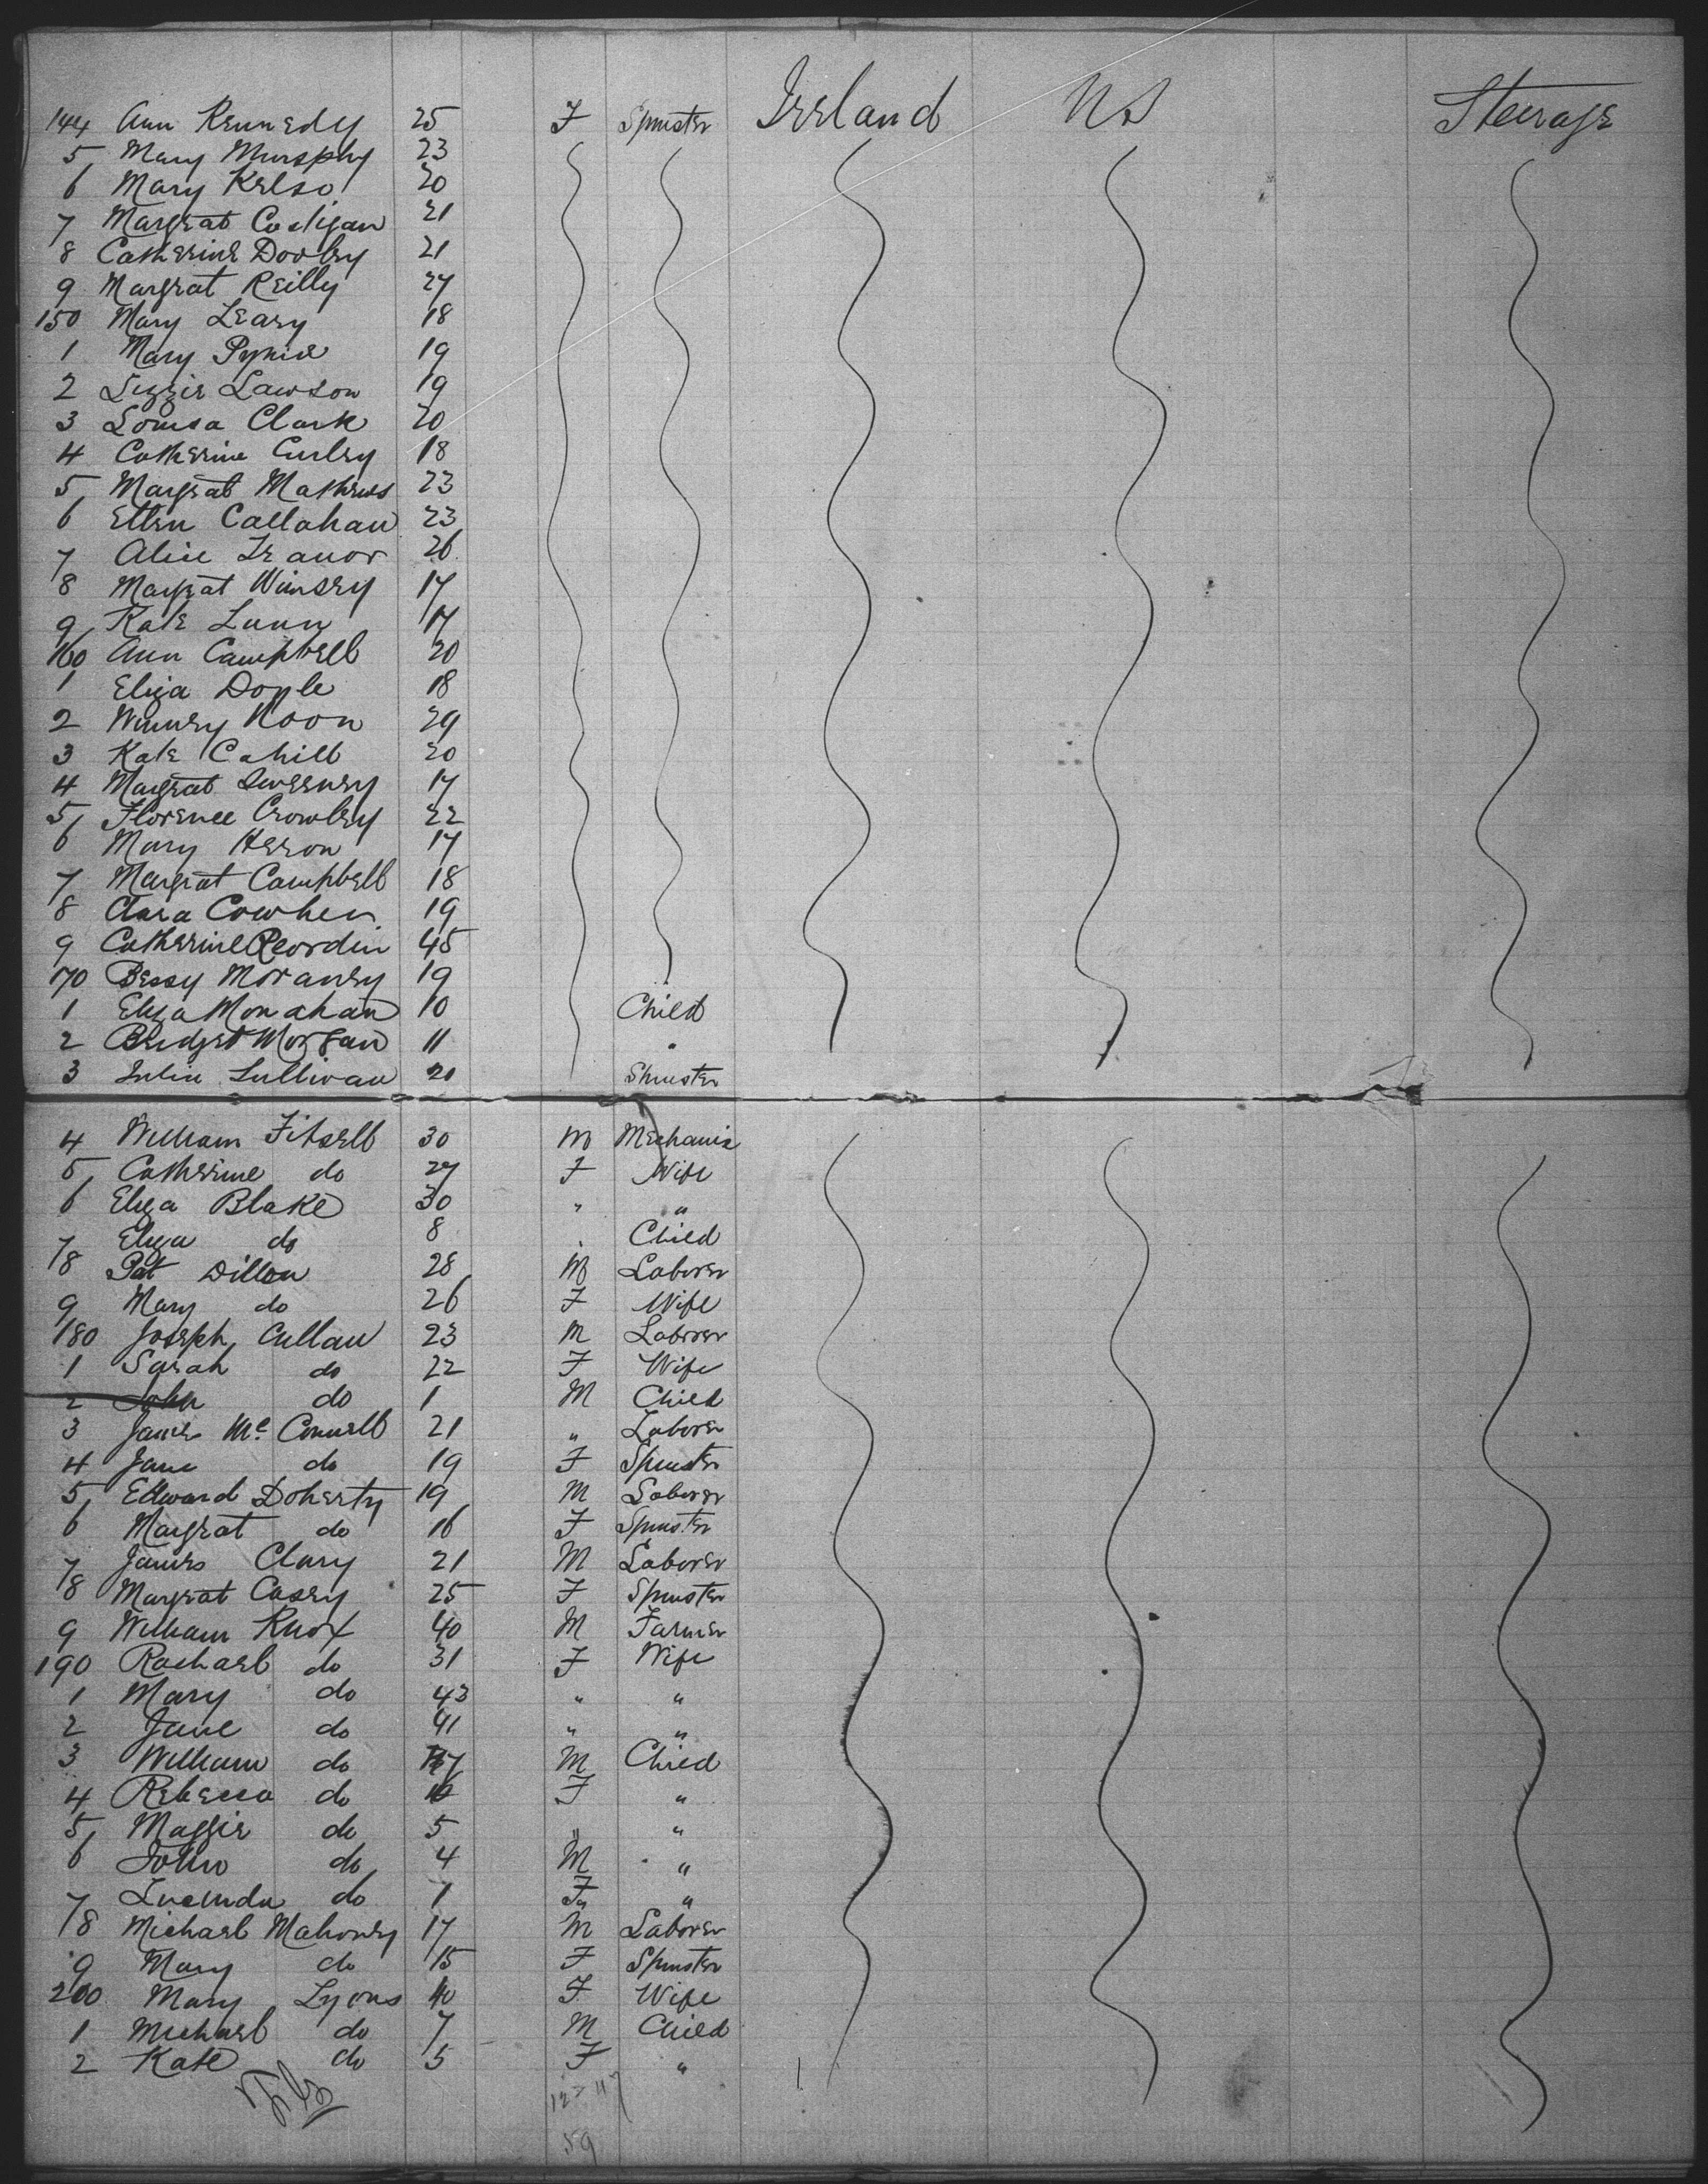 144 Ann Kennedy 25 F Spinster Ireland US Steerage
5 Mary Murphy 23
6 Mary Kelso 20
7 Margrat Costigan 21
8 Catherine Dooley 21
9 Margrat Reilly 27
150 Mary Leary 18
1 Mary 19
2 Lizzie Lawson 19
3 Louisa Clark 20
4 Catherine Curley 18
5 Margrat Mathews 23
6 Ellen Callahan 23
7 Alice Treanor 26
8 Margrat 17
9 Kate Lunn 17
160 Ann Campbell 20
1 Eliza Doyle 18
2 Winney Noon 29
3 Kate Cahill 20
4 Margrat Sweeney 17
5 Florence Crowley 22
6 Mary Heron 17
7 Margrat Campbell 18
8 Clara Cowhen 19
9 Catherine Reordin 45
170 Bessy Moraney 19
1 Eliza Monahan 10 Child
2 Bridget Morgan 11 "
3 Julia Sullivan 20 Spinster
4 William Fitsell 30 M Mechanic
5 Catherine do 27 F Wife
6 Eliza Blake 30 " "
7 Eliza do 8 Child
8 Pat Dillon 28 M Laborer
9 Mary do 26 F Wife
180 Joseph Cullan 23 M Laborer
1 Sarah do 22 F Wife
2 John do 1 M Child
3 James Mc Connell 21 " Laborer
4 Jane do 19 F Spinster
5 Edward Doherty 19 M Laborer
6 Margrat do 16 F Spinster
7 James Clary 21 M Laborer
8 Margrat Casey 25 F Spinster
9 William Knox 40 M Farmer
190 Rachael do 31 F Wife
1 Mary do 43 " "
2 Jane do 41 " "
3 William do M Child
4 Rebecca do F "
5 Maggie do 5 " "
6 John do 4 M "
7 Lucinda do 1 F "
8 Michael Mahoney 17 M Laborer
9 Mary do 15 F Spinster
200 Mary Lyons 40 F Wife
1 Michael do 7 M Child
2 Kate do 5 F "
59